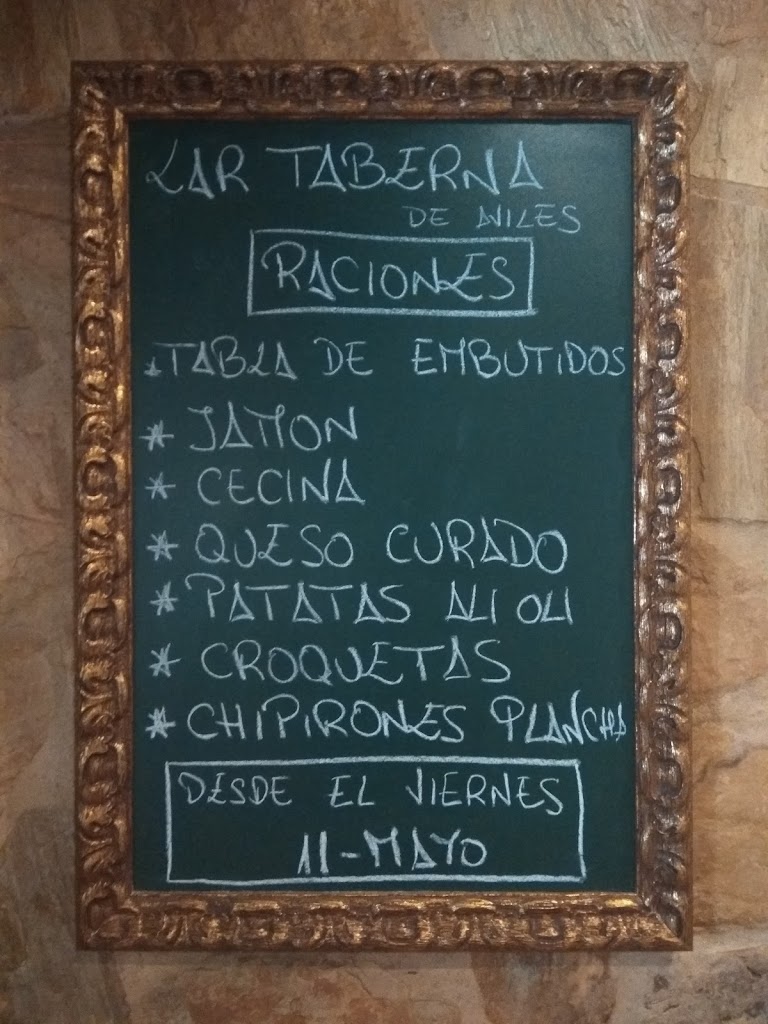 LAR TABERNA
DE AVILES
RACIONES
*TABLA DE EMBUTIDOS
* JAMON
* CECINA
* QUESO CURADO
* PATATAS ALI OLI
* CROQUETAS
* CHIPIRONES PLANCHA
DESDE EL VIERNES
11-MAYO